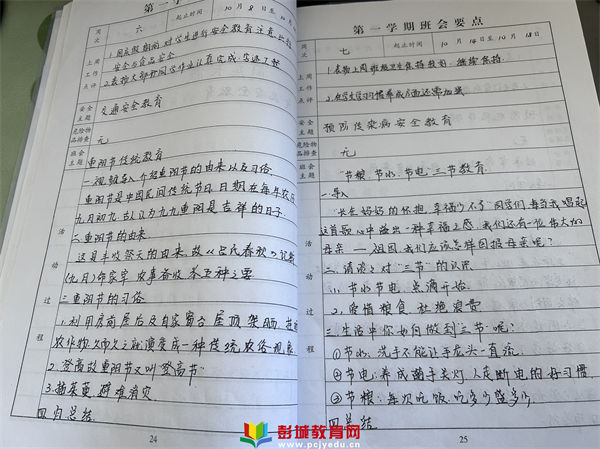 第一学期
周次
六
起止时间
10月8日至10月
上周工作点评
1.国庆假期前对学生进行安全教育注意出行
安全与食品安全
2.表扬大部分同学作业认真完成,字迹工整
安全主题
交通安全教育
危险物品排查
无
班会主题
重阳节传统教育
活动过程
一.视频导入,介绍重阳节的由来以及习俗
重阳节是中国民间传统节日,日期在每年农历
九月初九,故认为九九重阳是吉祥的日子.
二.重阳节的由来
这是丰收祭天的由来,故《吕氏春秋》记载
(九月)命家宰,农事备收,举五种之要
三.重阳节的习俗
1.利用房前屋后及自家窗台、屋顶架晒,挂晒
农作物,久而久之就演变成一种传统农俗现象
2.登高故重阳节又叫"登高节"
3.插茱萸,辟难消灾.
四.自总结.
24
第一学期班会要点
周次
七
起止时间
10月14日至10月18日
上周工作点评
1.表扬上周班级卫生保持较好,继续保持.
2.但学生学习习惯养成方面还需加强
安全主题
预防传染病安全教育
危险物品排查
无
班会主题
"节粮、节水、节电"三节教育.
活动过程
一.导入
"我在妈妈的怀抱,幸福少不了"同学们,每当我唱起
这首歌心中溢出一种幸福之感,我们还有一位伟大的
母亲——祖国,我们应该怎样回报母亲呢?
二.请谈谈对"三节"的认识
1.节水节电,点滴开始.
2.爱惜粮食,杜绝浪费
三.生活中你如何做到三节呢?
①节水:洗手不能让水龙头一直流.
②节电:养成随手关灯,人走断电的好习惯.
③节粮:每次吃饭,吃多少盛多少.
四.总结.
25
彭城教育网
www.pcjyedu.cn